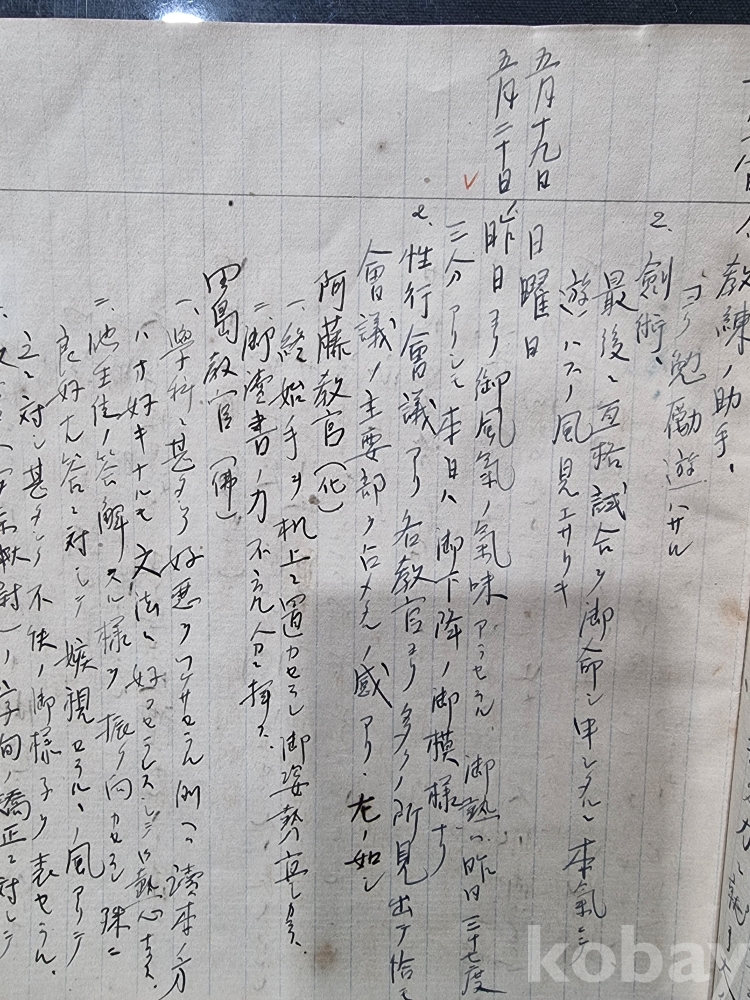 教練ノ助手、
ヨク勉励遊ハサル
2. 剣術、
最後ニ互格試合ヲ御命シ申シタルニ本氣ニ
遊ハスノ風見エサリキ
五月十九日 日曜日
五月二十日、昨日ヨリ御風氣ノ氣味アラセラル、御熱ハ昨日三十七度
三分アリシモ本日ハ御下降ノ御模様ナリ
2、性行會議アリ各教官ヨリ多クノ所見出テ恰モ
會議ノ主要部ヲ占メタルノ感アリ、左ノ如シ
阿藤教官(化)
一、終始手ヲ机上ニ置カセラレ御姿勢宜シカラス、
二、御読書ノ力不充分ニ拝ス、
田島教官(佛)
一、學科ニ甚タシク好悪ヲツケサセラル例ヘハ讀本ノ方
ハオ好キナルモ文法ハ好マセラレス
二、他生徒ノ答解スル様ヲ振リ向カセラレ殊ニ
良好ナル答ニ対シテ嫉視セラルヽノ風アリテ
之ニ対シ甚タシク不快ノ御様子ヲ表セラル、
字句ノ矯正ニ対シテ
kobay